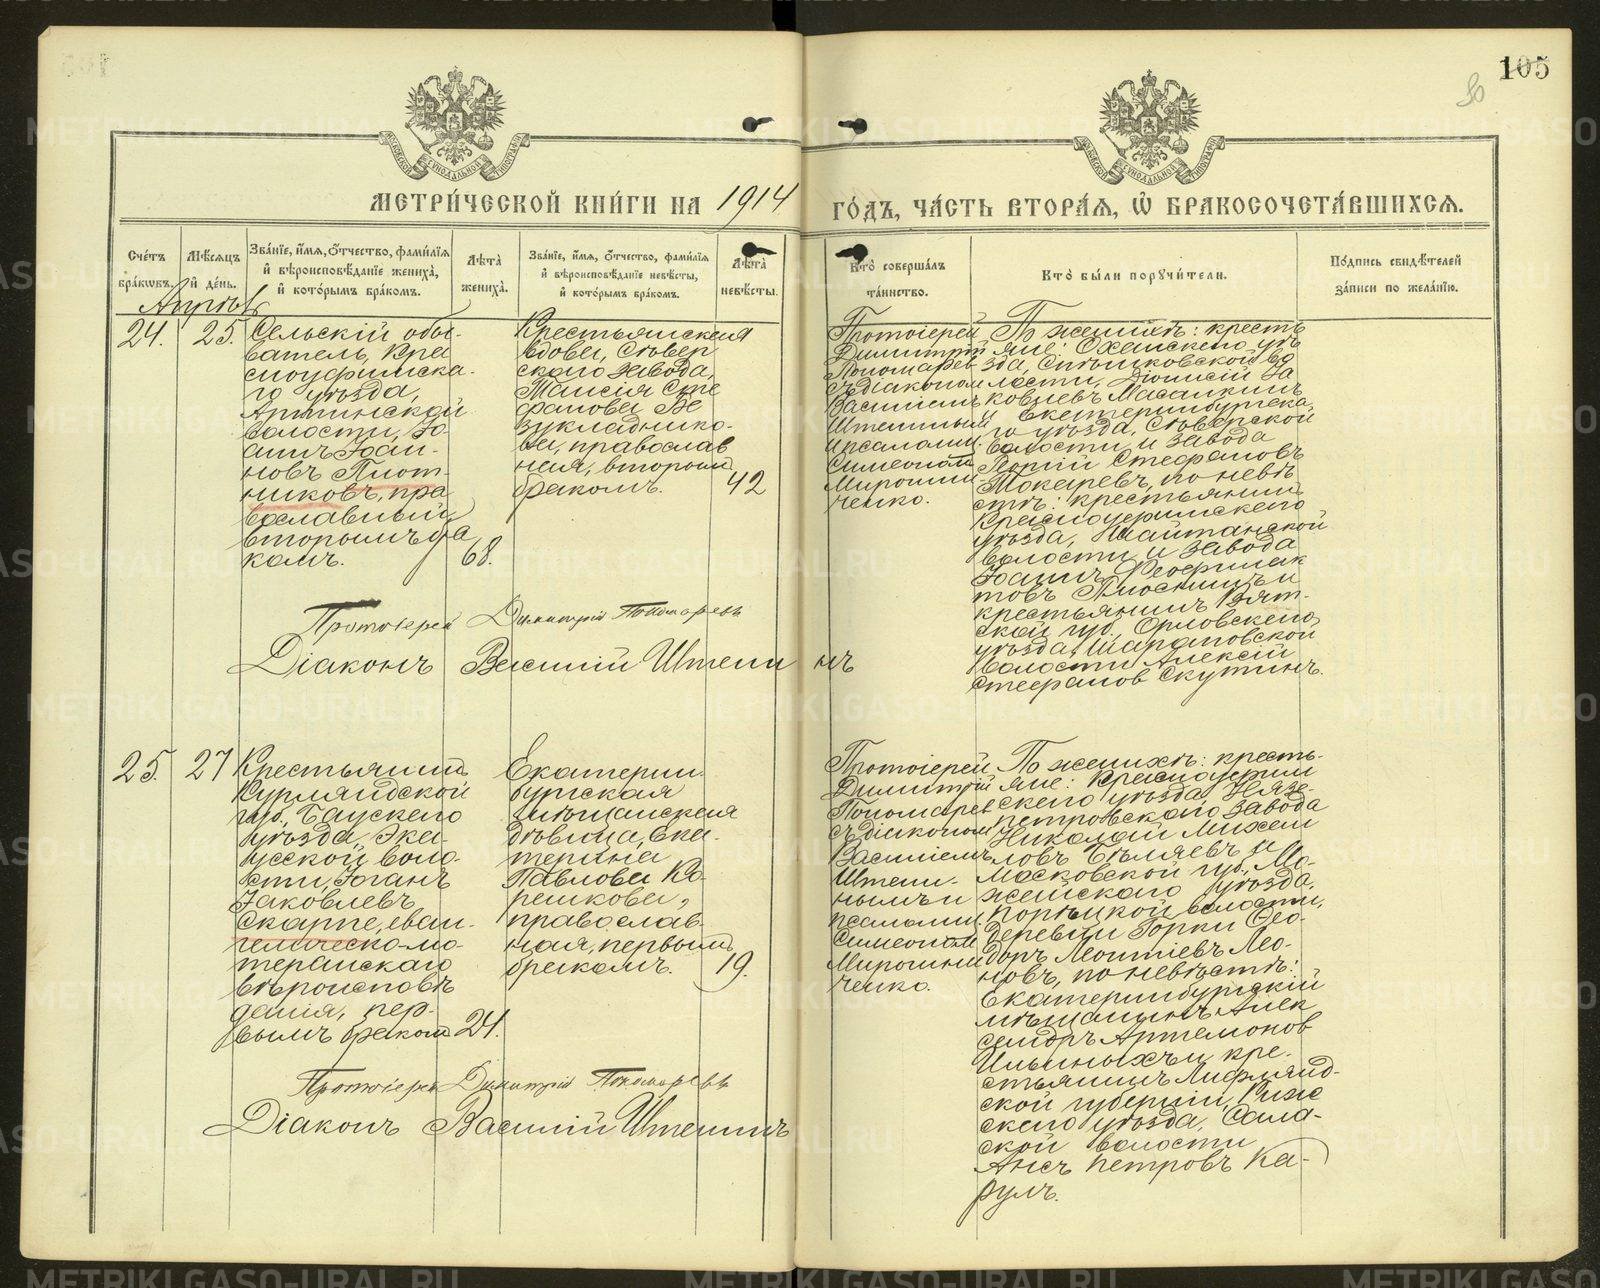 105
80
МЕТРИ́ЧЕСКОЙ КНИ́ГИ НА 1914 ГО́ДЪ, ЧА́СТЬ ВТОРА́Я, Ѡ҆ БРАКОСОЧЕТА́ВШИХСЯ.
Сче́тъ бра́кѡвъ.
Мѣ́сяцъ и҆ де́нь.
Зва́нїе, и҆́мя, ѻ҆́тчество, фами́лїя
и҆ вѣроисповѣ́данїе жениха̀,
и҆ кото́рымъ бра́комъ.
Лѣ́та жениха̀.
Зва́нїе, и҆́мя, ѻ҆́тчество, фами́лїя
и҆ вѣроисповѣ́данїе невѣ́сты,
и҆ кото́рымъ бра́комъ.
Лѣ́та невѣ́сты.
Кто̀ соверша́лъ
та́инство.
Кто̀ бы́ли поручи́тели.
По́дпись свидѣ́телей
за́писи по жела́нїю.
Апрѣль
24.
25.
Сельскій обы-
ватель, Кра
сноуфимска-
го уѣзда,
Артинской
волости, Іо-
аннъ Іоан-
новъ Плот-
никовъ, пра
вославный
вторымъ бра
комъ.
68.
Крестьянская
вдова, Сѣвер
скаго завода,
Таисія Сте
фанова Бе
зукладнико-
ва, православ
ная, вторымъ
бракомъ.
42
Протоіерей
Димитрій
Пономарев
съ діакономъ
Василіемъ
Штеннымъ
и псаломщ.
Симеономъ
Мирошни-
ченко.
По женихѣ: кресть
яне: Оханскаго уѣ
зда, Сѣпычковской во
лости, Діонисій Іа
ковлевъ Масалкинъ
и Екатеринбургска
го уѣзда, Сѣверской
волости и завода
Георгій Стефановъ
Токаревъ, по невѣ
стѣ: крестьянинъ
Красноуфимскаго
уѣзда, Шайтанской
волости и завода
Іоаннъ Феофилак
товъ Плюснинъ и
крестьянинъ Вят-
ской губ., Орловскаго
уѣзда, Шарановской
волости Алексій
Стефанов Скутинъ.
Протоіерей Димитрій Пономаревъ
Діаконъ Василій Штеннинъ
25.
27
Крестьянинъ
Курляндской
губ., Баускаго
уѣзда, Экка-
усской воло-
сти, Іоганъ
Іаковлевъ
Скарпе, еван-
гелическо-лю-
теранскаго
вѣроисповѣ
данія, пер-
вымъ бракомъ
24.
Екатерин-
бургская
мѣщанская
дѣвица, Ека-
терина
Павлова Ко-
решкова,
православ-
ная, первымъ
бракомъ.
19.
Протоіерей
Димитрій
Пономарев
съ діакономъ
Василіемъ
Штенн-
нымъ и
псаломщ.
Симеономъ
Мирошни
ченко.
По женихѣ: кресть-
яне: Красноуфим
скаго уѣзда Нязе-
петровскаго завода
Николай Михаи
ловъ Бѣляевъ и
Московской губ., Мо-
жайскаго уѣзда,
Порѣцкой волости,
деревни Горки Фео-
доръ Леонтіевъ Лео-
новъ, по невѣстѣ:
Екатеринбургскій
мѣщанинъ Алек
сандръ Артемонов
Ильиныхъ и кре-
стьянинъ Лифлянд-
ской губерніи, Риж
скаго уѣзда, Сала-
ской волости
Ансъ Петровъ Ка-
рулъ.
Протоіерей Димитрій Пономаревъ
Діаконъ Василій Штеннинъ